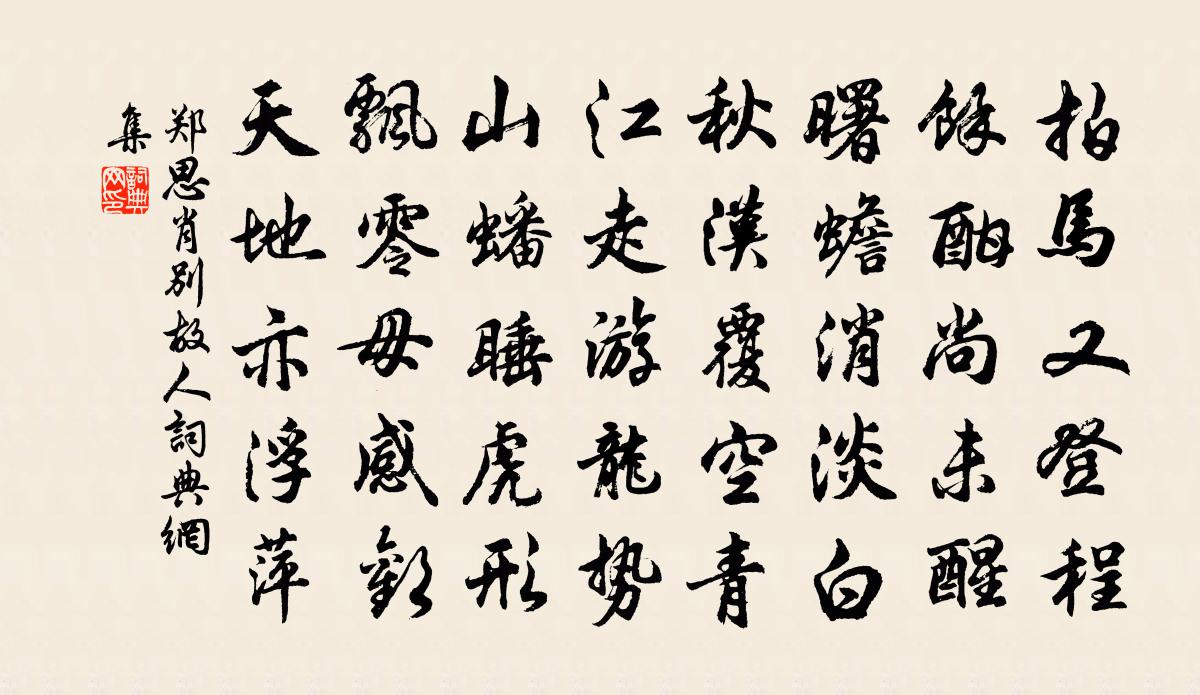 拍馬又登程
餘酣尚未醒
曙蟾消淡白
秋漢覆空青
江走游龍势
山蟠睡虎形
飄零毋感歎
天地亦浮萍
郑思肖别故人詞典網
集
詞典网印